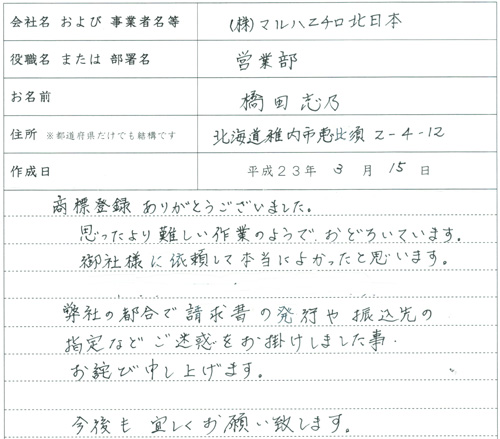 会社名 および 事業者名等 (株)マルハニチロ北日本
役職名 または 部署名 営業部
お名前 橋田志乃
住所 ※都道府県だけでも結構です 北海道稚内市恵比須 2-4-12
作成日 平成23年 3月 15日
商標登録 ありがとうございました。
思ったより難しい作業のようで、おどろいています。
御社様に依頼して本当によかったと思います。
弊社の都合で請求書の発行や振込先の
指定などご迷惑をお掛けしました事、
お詫び申し上げます。
今後も宜しくお願い致します。